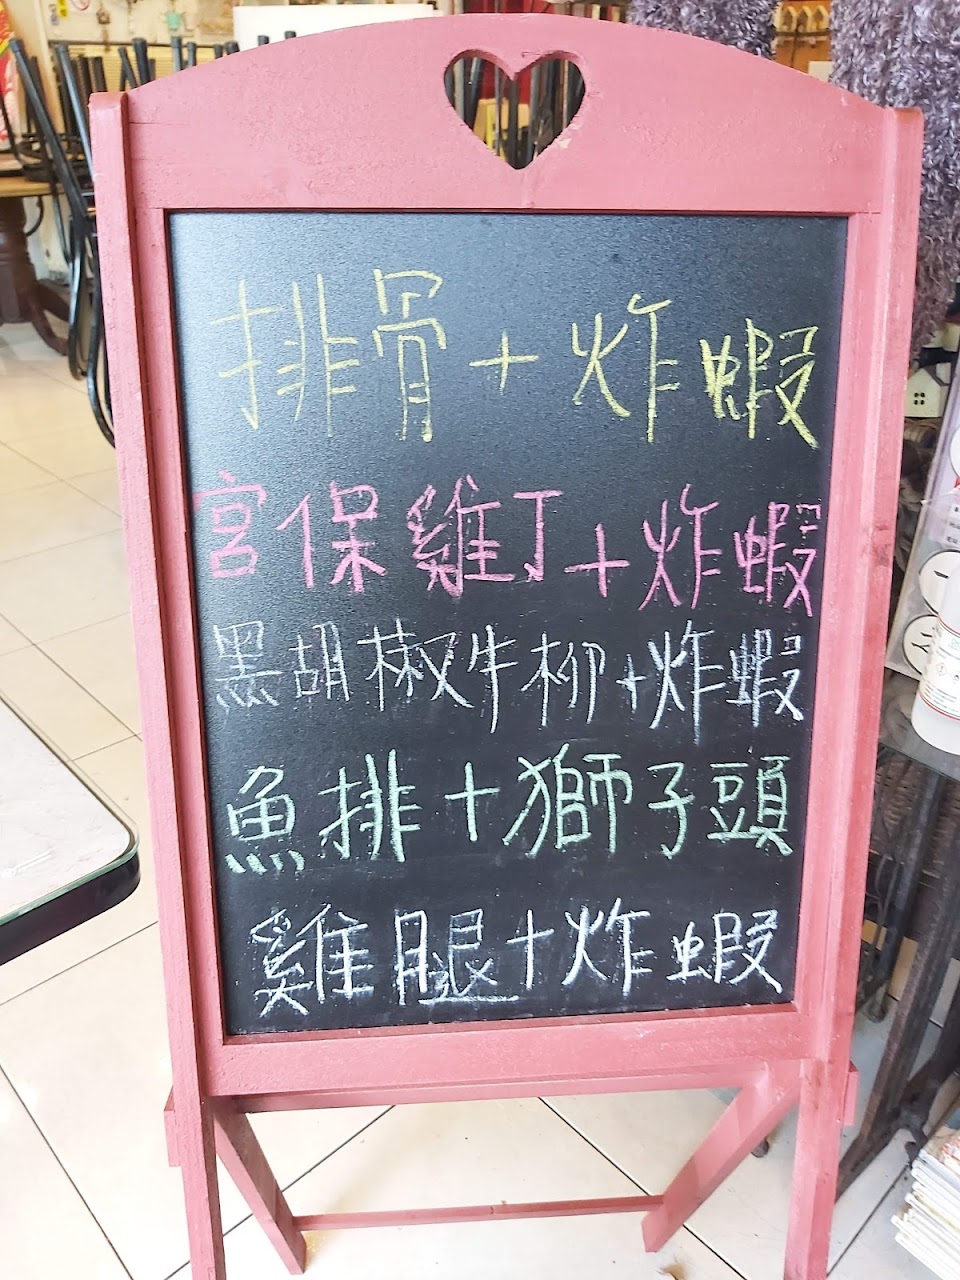 排骨+炸蝦
宮保雞丁+炸蝦
黑胡椒牛柳+炸蝦
魚排+獅子頭
雞腿+炸蝦